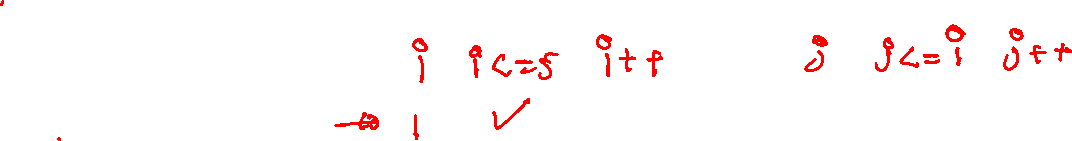 i i<=5 i++ j j<=i j++
→ 1 ✓